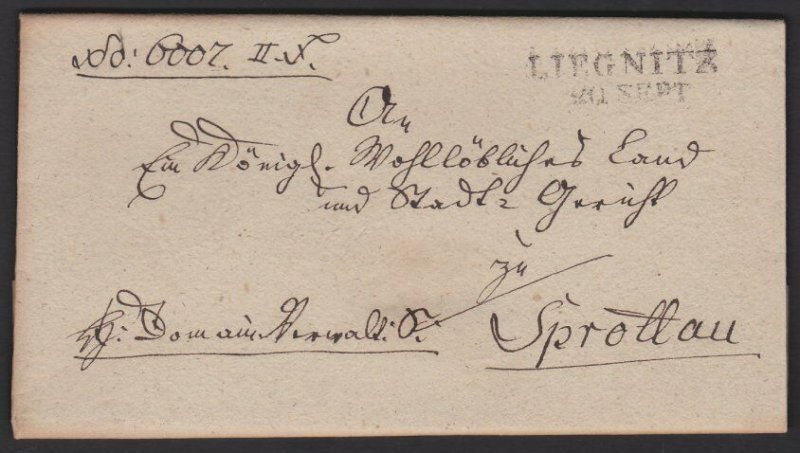 No: 6007. II. F.
LIEGNITZ
20 SEPT
An
Ein Königl. Wohllöbliches Land
und Stadt= Gericht
zu
Sprottau
Domain. Verwalt: S.